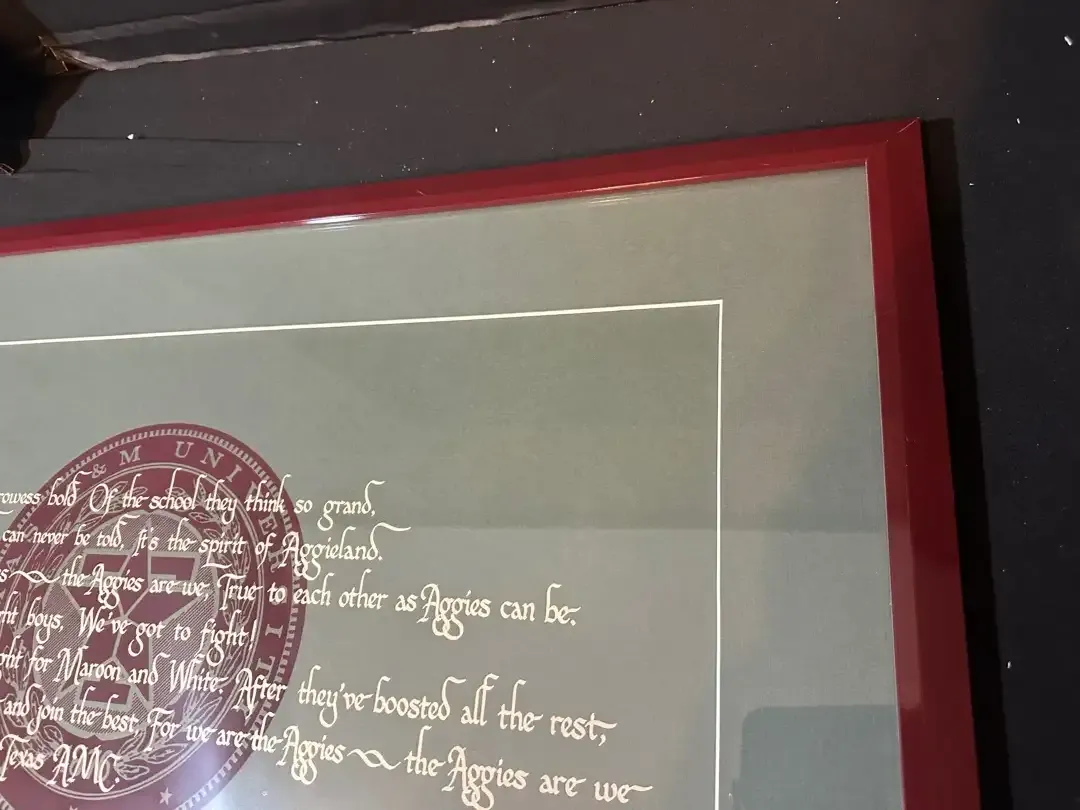 & M UNIVERSITY
rowess bold Of the school they think so grand,
can never be told, It's the spirit of Aggieland.
s~the Aggies are we, True to each other as Aggies can be.
ht boys, We've got to fight!
ght for Maroon and White. After they've boosted all the rest,
and join the best, For we are the Aggies~the Aggies are we
Texas AMC.